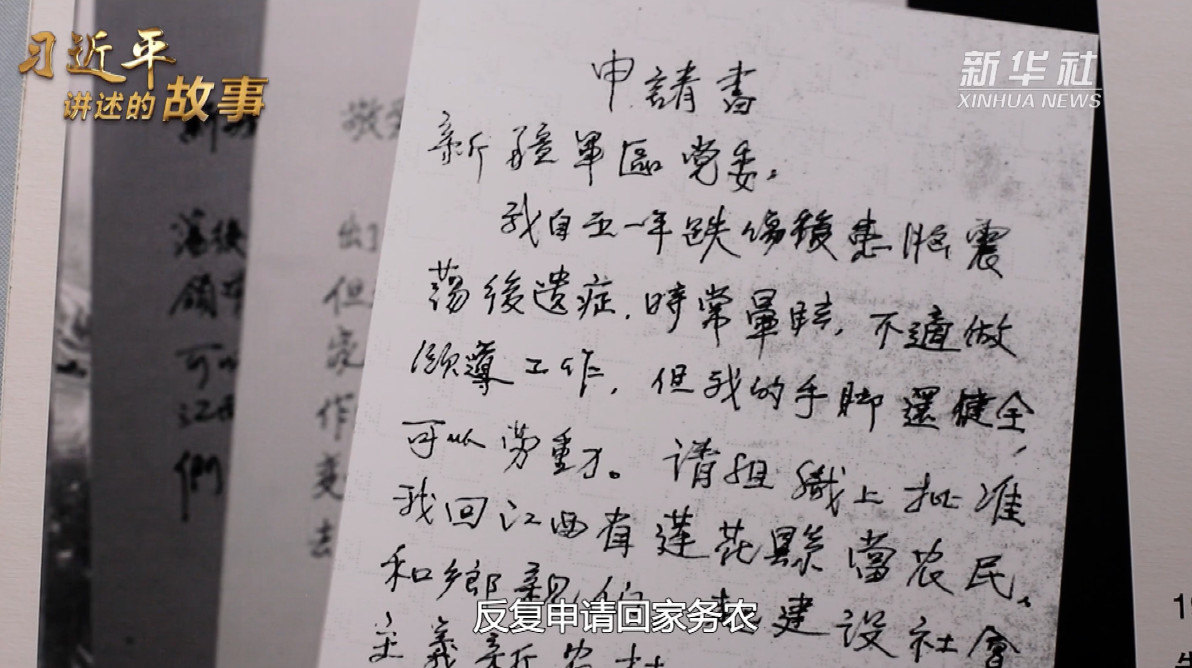 习近平
讲述的故事
新华社
XINHUA NEWS
申請書
新疆軍區党委：
我自五一年跌傷積患脑震
蕩後遗症，時常暈眩，不適做
領導工作，但我的手脚還健全，
可以劳動。请組織上批准
我回江西省莲花縣當农民，
和鄉親们一起建设社會
主義新农村
反复申请回家务农
敬
出
但
作
变
去
蕩後
領
可以
江西
們